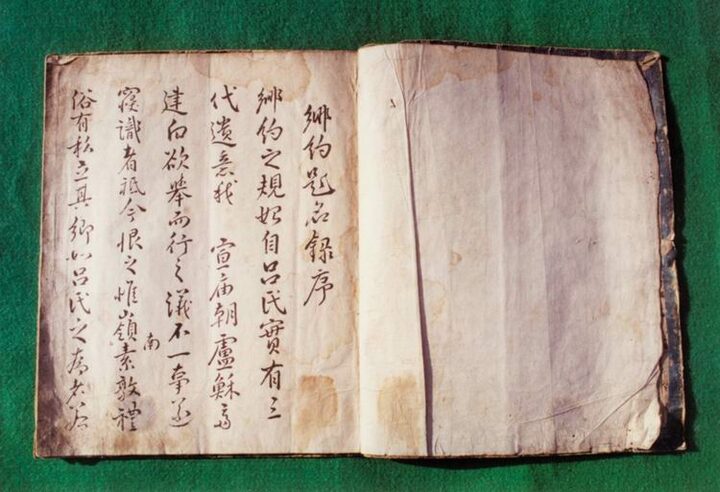 鄕約題名錄序
鄕約之規始自呂氏實有三
代遺意我 宣庙朝盧穌齋
建白欲擧而行之議不一事遂
寢識者祗今恨之惟嶺南素敦禮
俗有私立其鄕如呂氏之爲者